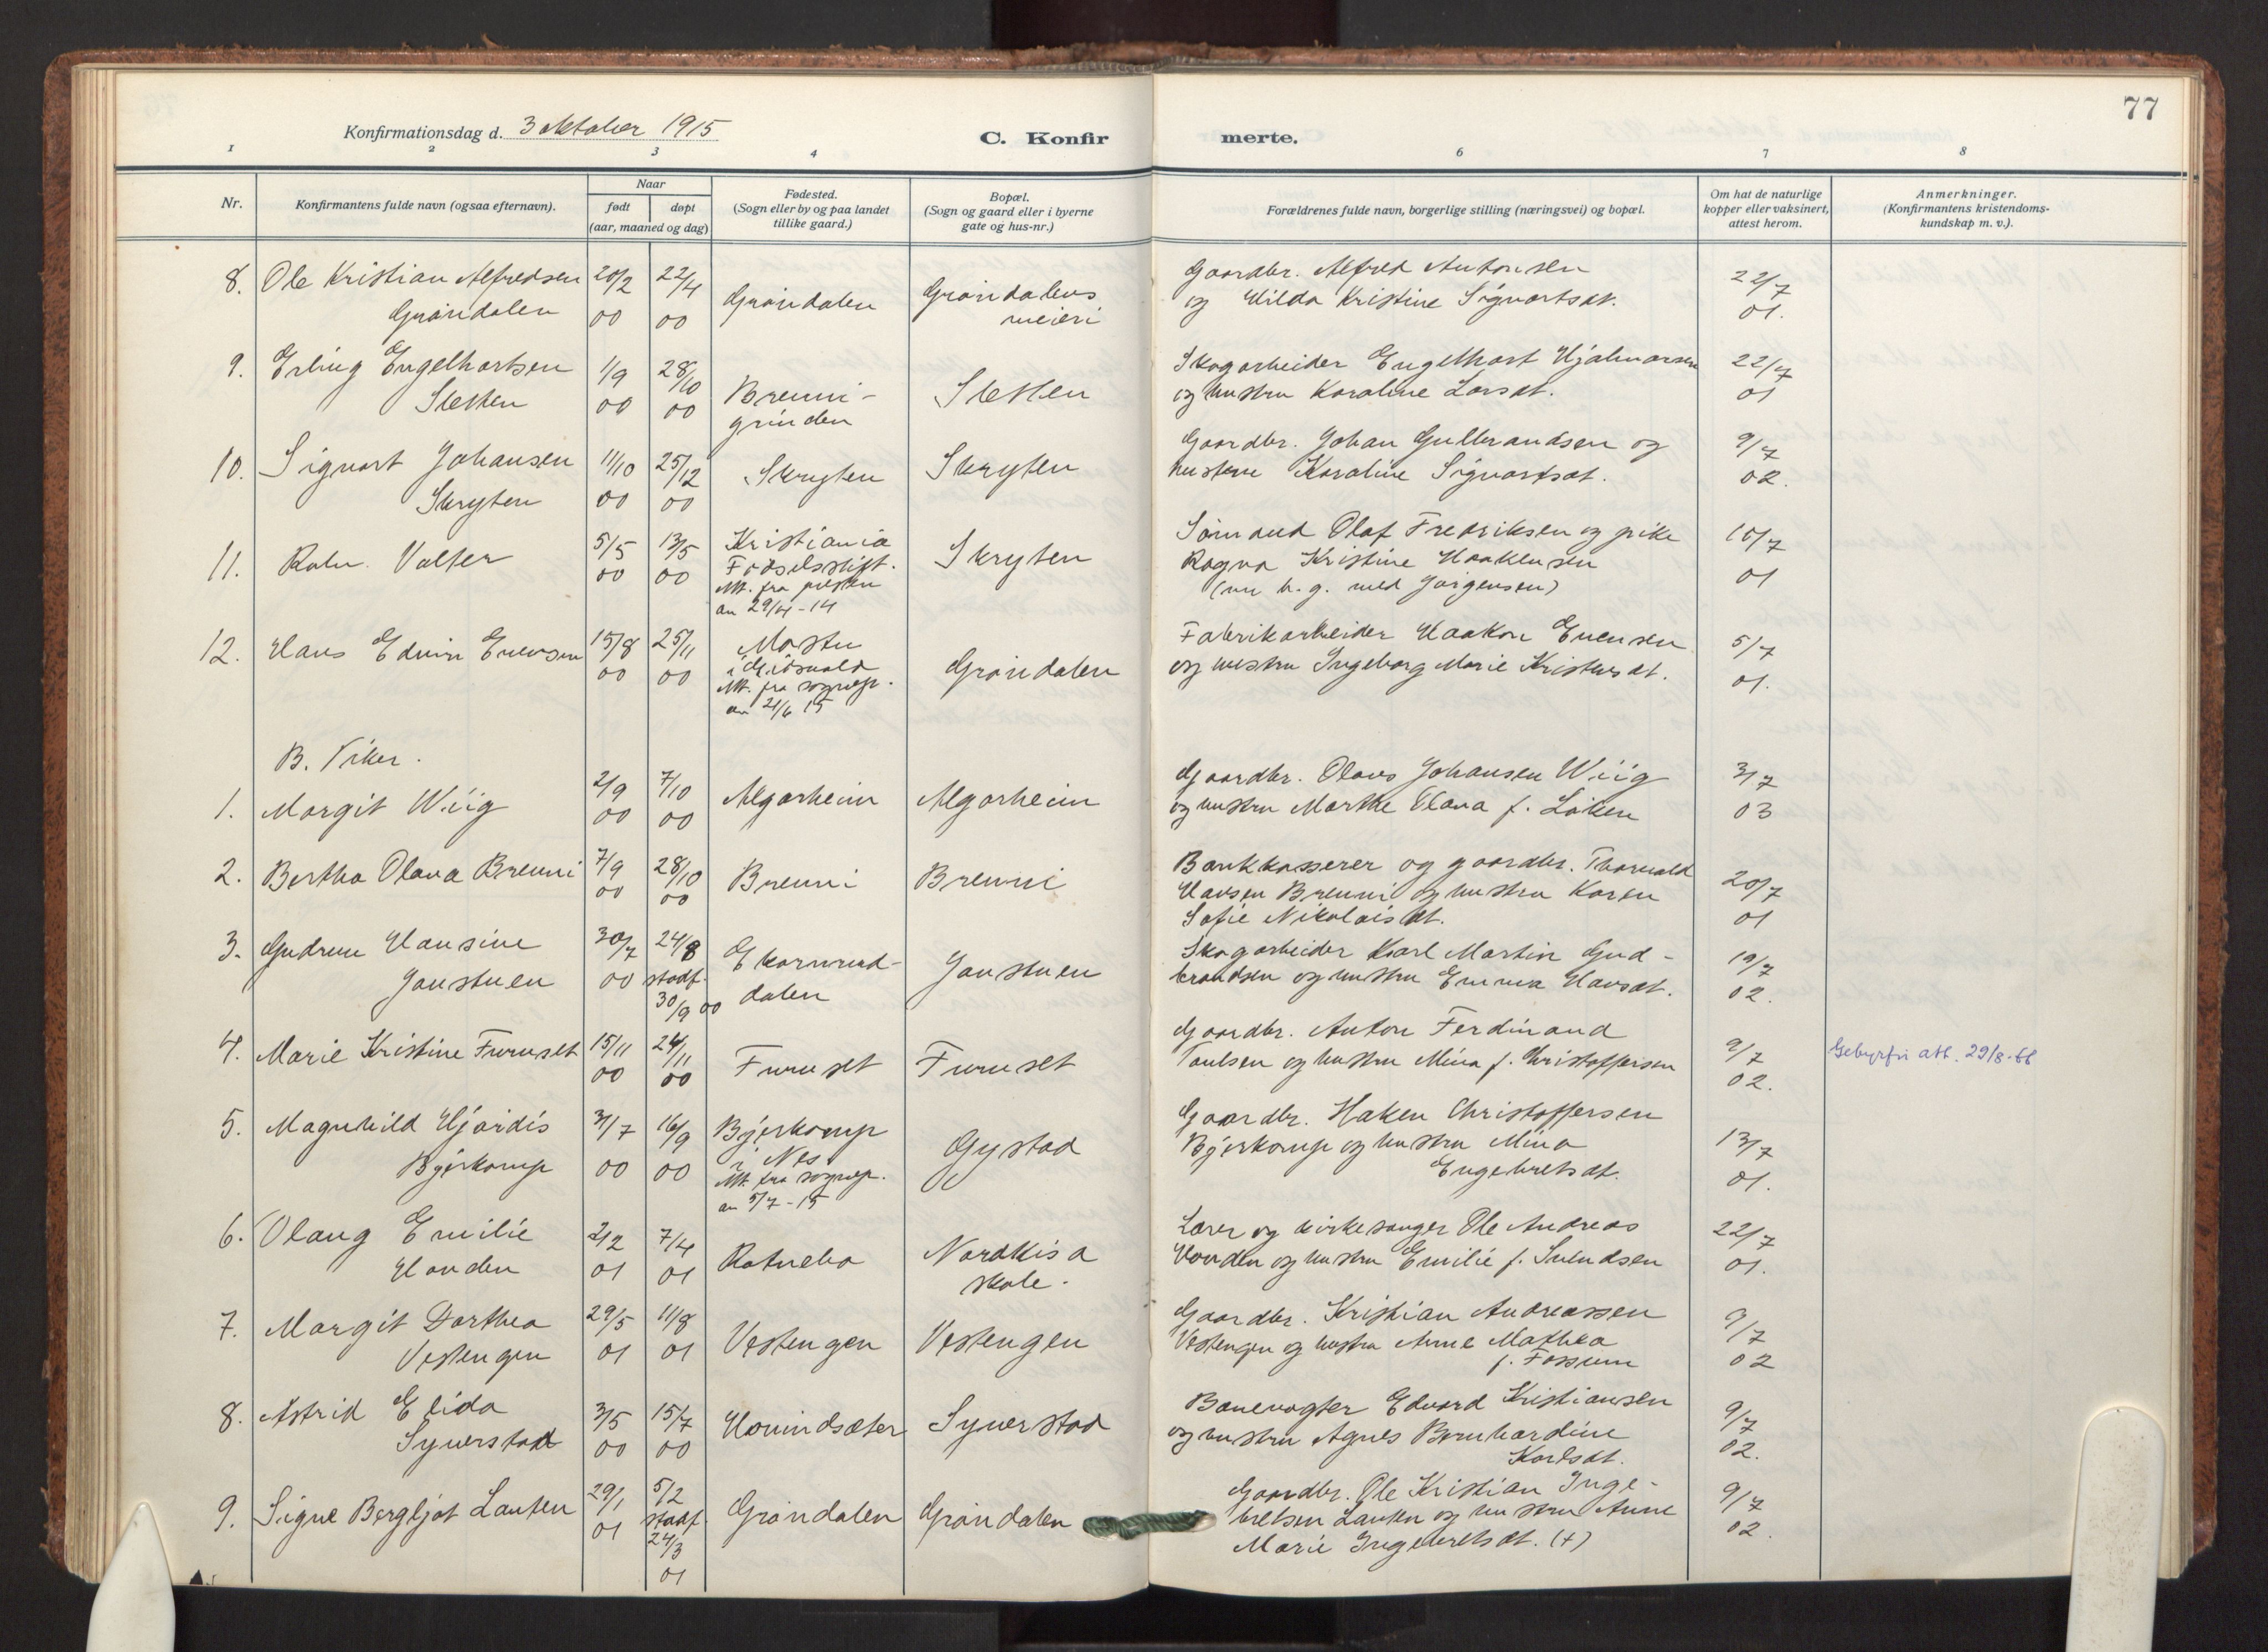 77
Konfirmationsdag d. 3 oktober 1915
C. Konfir
merte.
1 2 3 4 6 7 8
Nr.
Konfirmantens fulde navn (ogsaa efternavn).
Naar
født
døpt
(aar, maaned og dag)
Fødested.
(Sogn eller by og paa landet
tillike gaard.)
Bopæl.
(Sogn og gaard eller i byerne
gate og hus-nr.)
Forældrenes fulde navn, borgerlige stilling (næringsvei) og bopæl.
Om hat de naturlige
kopper eller vaksinert,
attest herom.
Anmerkninger.
(Konfirmantens kristendoms-
kundskap m. v.).
8. Ole Kristian Alfredsen 20/2 22/4 Gaardbr. Alfred Antonsen 22/7
Gröndalen 00 00 Gröndalen Gröndalens meieri og Hilda Kristine Sigvartsdt. 01.
9. Erling Engelhartsen 1/9 28/10 Skogarbeider Engelhart Hjalmarsen 22/7
Sletten 00 00 Brenni- Sletten og hustru Karoline Larsdt. 01
grinden
10. Sigvart Johansen 11/10 25/12 Gaardbr. Johan Gulbrandsen og 9/7
Skryten 00 00 Skryten Skryten hustru Karoline Sigvartsdt. 02.
11. Valter 5/5 13/5 Kristiania Sömand Olaf Fredriksen og pike 10/7
00 00 Fødselsstift. Skryten Ragna Kristine Haakensen 01
Att. fra presten (nu h. g. med Jörgensen)
an 29/4-14
12. Hans Edvin Evensen 15/8 25/11 Fabrikarbeider Haakon Evensen 5/7
00 00 i Eidsvold Gröndalen og hustru Ingeborg Marie Kristensdt. 01.
Att. fra sognepr.
an 21/6 15
B. Piker.
1. Margit Wiig 2/9 7/10 Algarheim Algarheim Gaardbr. Olaus Johansen Wiig 3/7
00 00 og hustru Marthe Olava f. Löken 03
2. Bertha Olava Brenni 7/9 28/10 Brenni Brenni Bankkasserer og gaardbr. Thorvald 20/7
00 00 Hansen Brenni og hustru Karen 01
Sofie Nikolaisdt.
3. Gudrun Hansine 30/7 24/8 Ekornrud- Skogarbeider Karl Martin Gud- 19/7
Jonstuen 00 stadf. dalen Jonstuen brandsen og hustru Emma Hansdt. 02.
30/9 00
4. Marie Kristine Furuset 15/11 24/11 Gaardbr. Anton Ferdinand 9/7
00 00 Furuset Furuset Paulsen og hustru Mina f. Kristoffersen 02. Gebyrfri att. 29/8-66
5. Magnhild Hjördis 31/7 16/9 Bjerkamp Gaardbr. Haken Christoffersen 13/7
Bjerkamp 00 00 i Nes. Gystad Bjerkamp og hustru Mina 01.
Att. fra sognepr. Engebretsdt.
an 5/7-15
6. Olaug Emilie 2/2 7/4 Lærer og kirkesanger Ole Andreas 22/7
Honden 01 01 Nordkisa skole. Honden og hustru Emilie f. Svendsen 01.
7. Margit Dorthea 29/5 11/8 Gaardbr. Kristian Andreassen 9/7
Vestengen 01 01 Vestengen Vestengen Vestengen og hustru Anne Mathea 02
f. Fossum
8. Astrid Elida 3/5 15/7 Banevogter Edvard Kristiansen 9/7
Syverstad 00 00 Syverstad og hustru Agnes Bernhardine 02.
Karlsdt.
9. Signe Bergljot Lauten 29/1 5/2 Gaardbr. Ole Kristian Inge- 9/7
01 stadf. Gröndalen Gröndalen bretsen Lauten og hustru Anne 02.
24/3 Marie Ingebretsdt. (+)
01